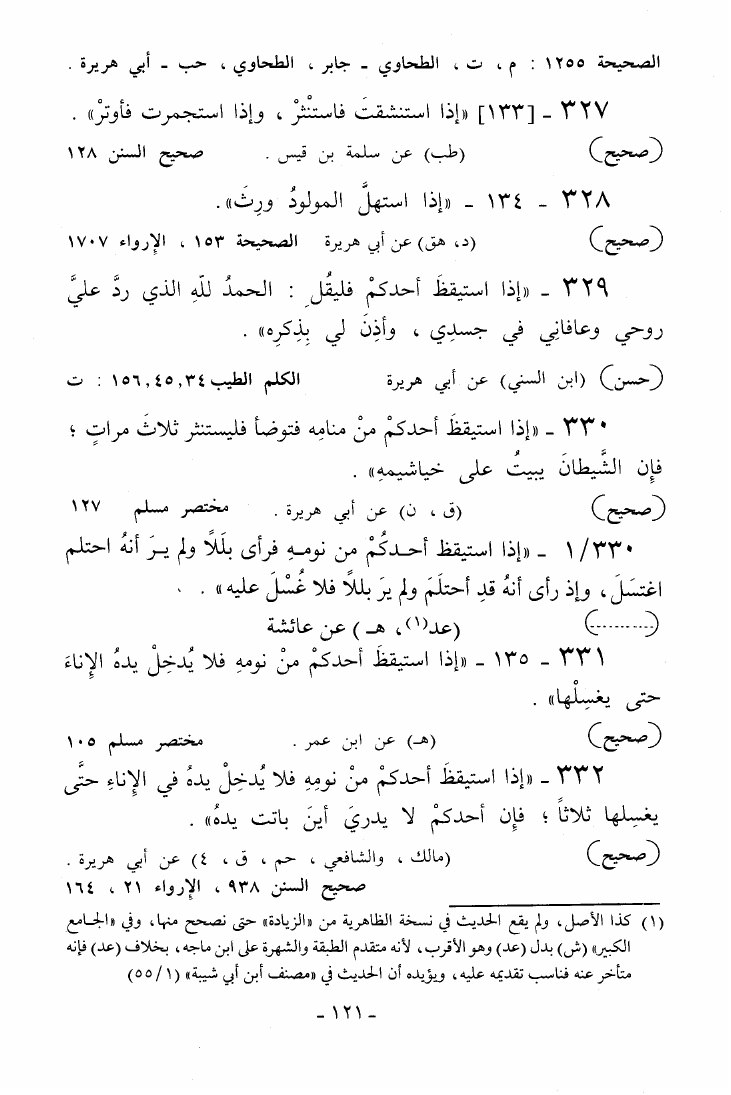 الصحيحة ١٢٥٥ : م ، ت ، الطحاوي ـ جابر ، الطحاوي ، حب ـ أبي هريرة .
٣٢٧ ـ [١٣٣] «إذا استنشقتَ فاستنْثرْ ، وإذا استجمرت فأوترْ» .
(صحيح) (طب) عن سلمة بن قيس . صحيح السنن ١٢٨
٣٢٨ ـ ١٣٤ ـ «إذا استهلَّ المولودُ ورِثَ».
(صحيح) (د، هق) عن أبي هريرة الصحيحة ١٥٣ ، الإرواء ١٧٠٧
٣٢٩ ـ «إذا استيقظَ أحدكمْ فليقُلِ : الحمدُ للّهِ الذي ردَّ عليَّ
روحي وعافانِي في جسدِي ، وأذِنَ لي بِذِكرِه» .
(حسن) (ابن السني) عن أبي هريرة الكلم الطيب ٣٤, ٤٥, ١٥٦ : ت
٣٣٠ ـ «إذا استيقظَ أحدكمْ منْ منامِه فتوضأ فليستنثر ثلاثَ مراتٍ ؛
فإن الشَّيطانَ يبيتُ على خياشيمهِ» .
(صحيح) (ق ، ن) عن أبي هريرة . مختصر مسلم ١٢٧
١/٣٣٠ ـ «إذا استيقظ أحدكُمْ من نومـهِ فرأى بلَلاً ولم يـرَ أنهُ احتلم
اغتسَلَ، وإذ رأى أنهُ قدِ أحتلَمَ ولم يرَ بللاً فلا غُسْلَ عليه» .
(..........) (عد(١)، هـ) عن عائشة
٣٣١ ـ ١٣٥ ـ «إذا استيقظَ أحدكمْ منْ نومهِ فلا يُدخِلْ يدهُ الإناءَ
حتى يغسِلْها» .
(صحيح) (هـ) عن ابن عمر . مختصر مسلم ١٠٥
٣٣٢ ـ «إذا استيقظَ أحدكمْ منْ نومِهِ فلا يُدخِلْ يدهُ في الإناءِ حتَّى
يغسِلها ثلاثاً ؛ فإن أحدكمْ لا يدريَ أينَ باتت يدهُ» .
(صحيح) (مالك ، والشافعي ، حم ، ق ، ٤) عن أبي هريرة .
صحيح السنن ٩٣٨ ، الإرواء ٢١ ، ١٦٤
(١) كذا الأصل، ولم يقع الحديث في نسخة الظاهرية من «الزيادة» حتى نصحح منها، وفي «الجامع
الكبير» (ش) بدل (عد) وهو الأقرب، لأنه متقدم الطبقة والشهرة على ابن ماجه، بخلاف (عد) فإنه
متأخر عنه فناسب تقديمه عليه، ويؤيده أن الحديث في «مصنف أبن أبي شيبة» (١/٥٥)
ـ ١٢١ ـ